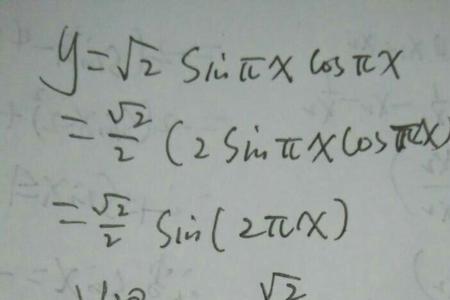 y=√2 sinπx cosπx
=√2/2 (2 sinπx cosπx)
=√2/2 sin(2πx)
√2